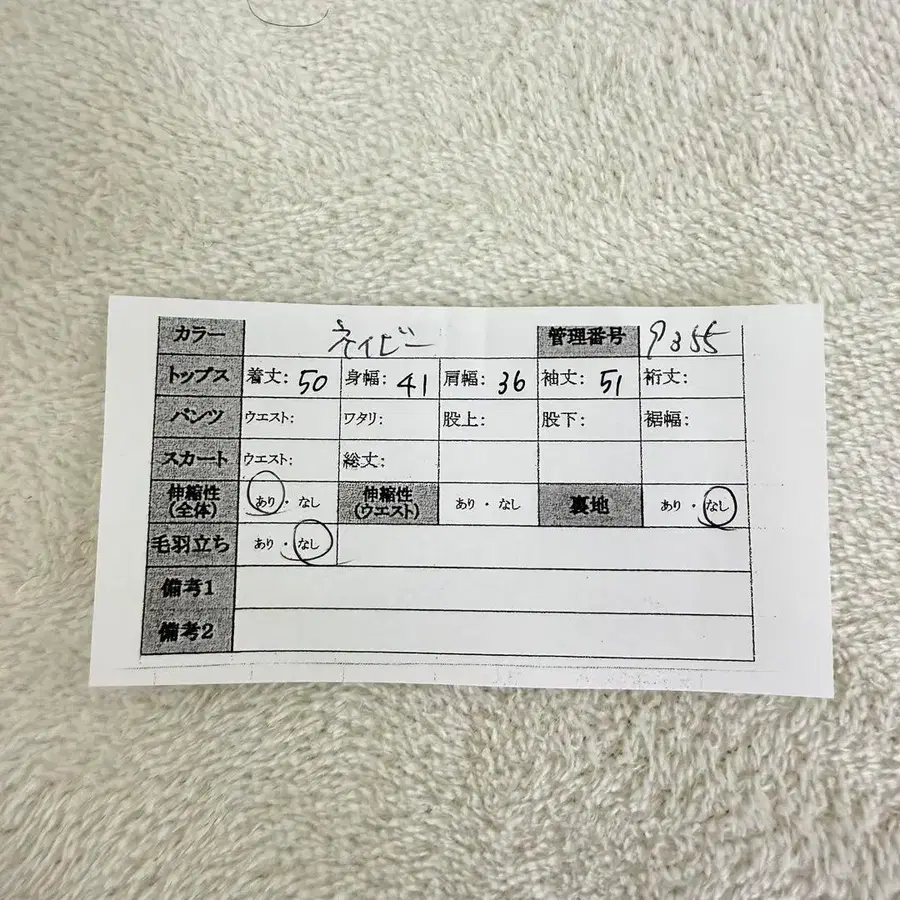 カラー ネイビー 管理番号 9355
トップス 着丈: 50 身幅: 41 肩幅: 36 袖丈: 51 裄丈:
パンツ ウエスト: ワタリ: 股上: 股下: 裾幅:
スカート ウエスト: 総丈:
伸縮性(全体) あり・なし 伸縮性(ウエスト) あり・なし 裏地 あり・なし
毛羽立ち あり・なし
備考1
備考2